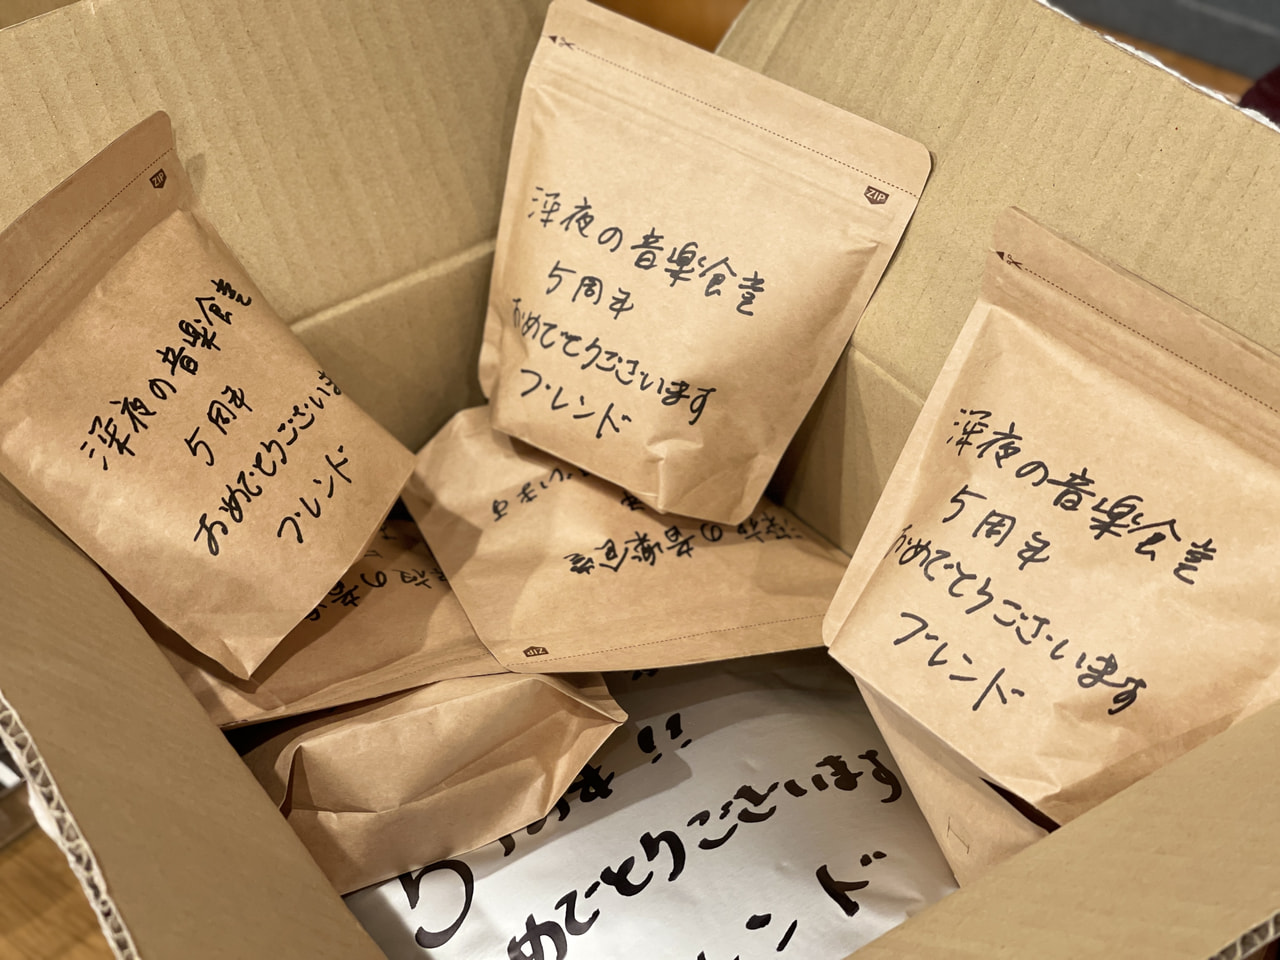 深夜の音楽食堂
5周年
おめでとうございます
ブレンド
ZIP
深夜の音楽食堂
5周年
おめでとうございま
ブレンド
ZIP
深夜の音楽食堂
5周年
おめでとうございます
ブレンド
ざいます
深夜の音楽食堂
ZIP
深夜の音楽
5周年
めでとうございます
レンド